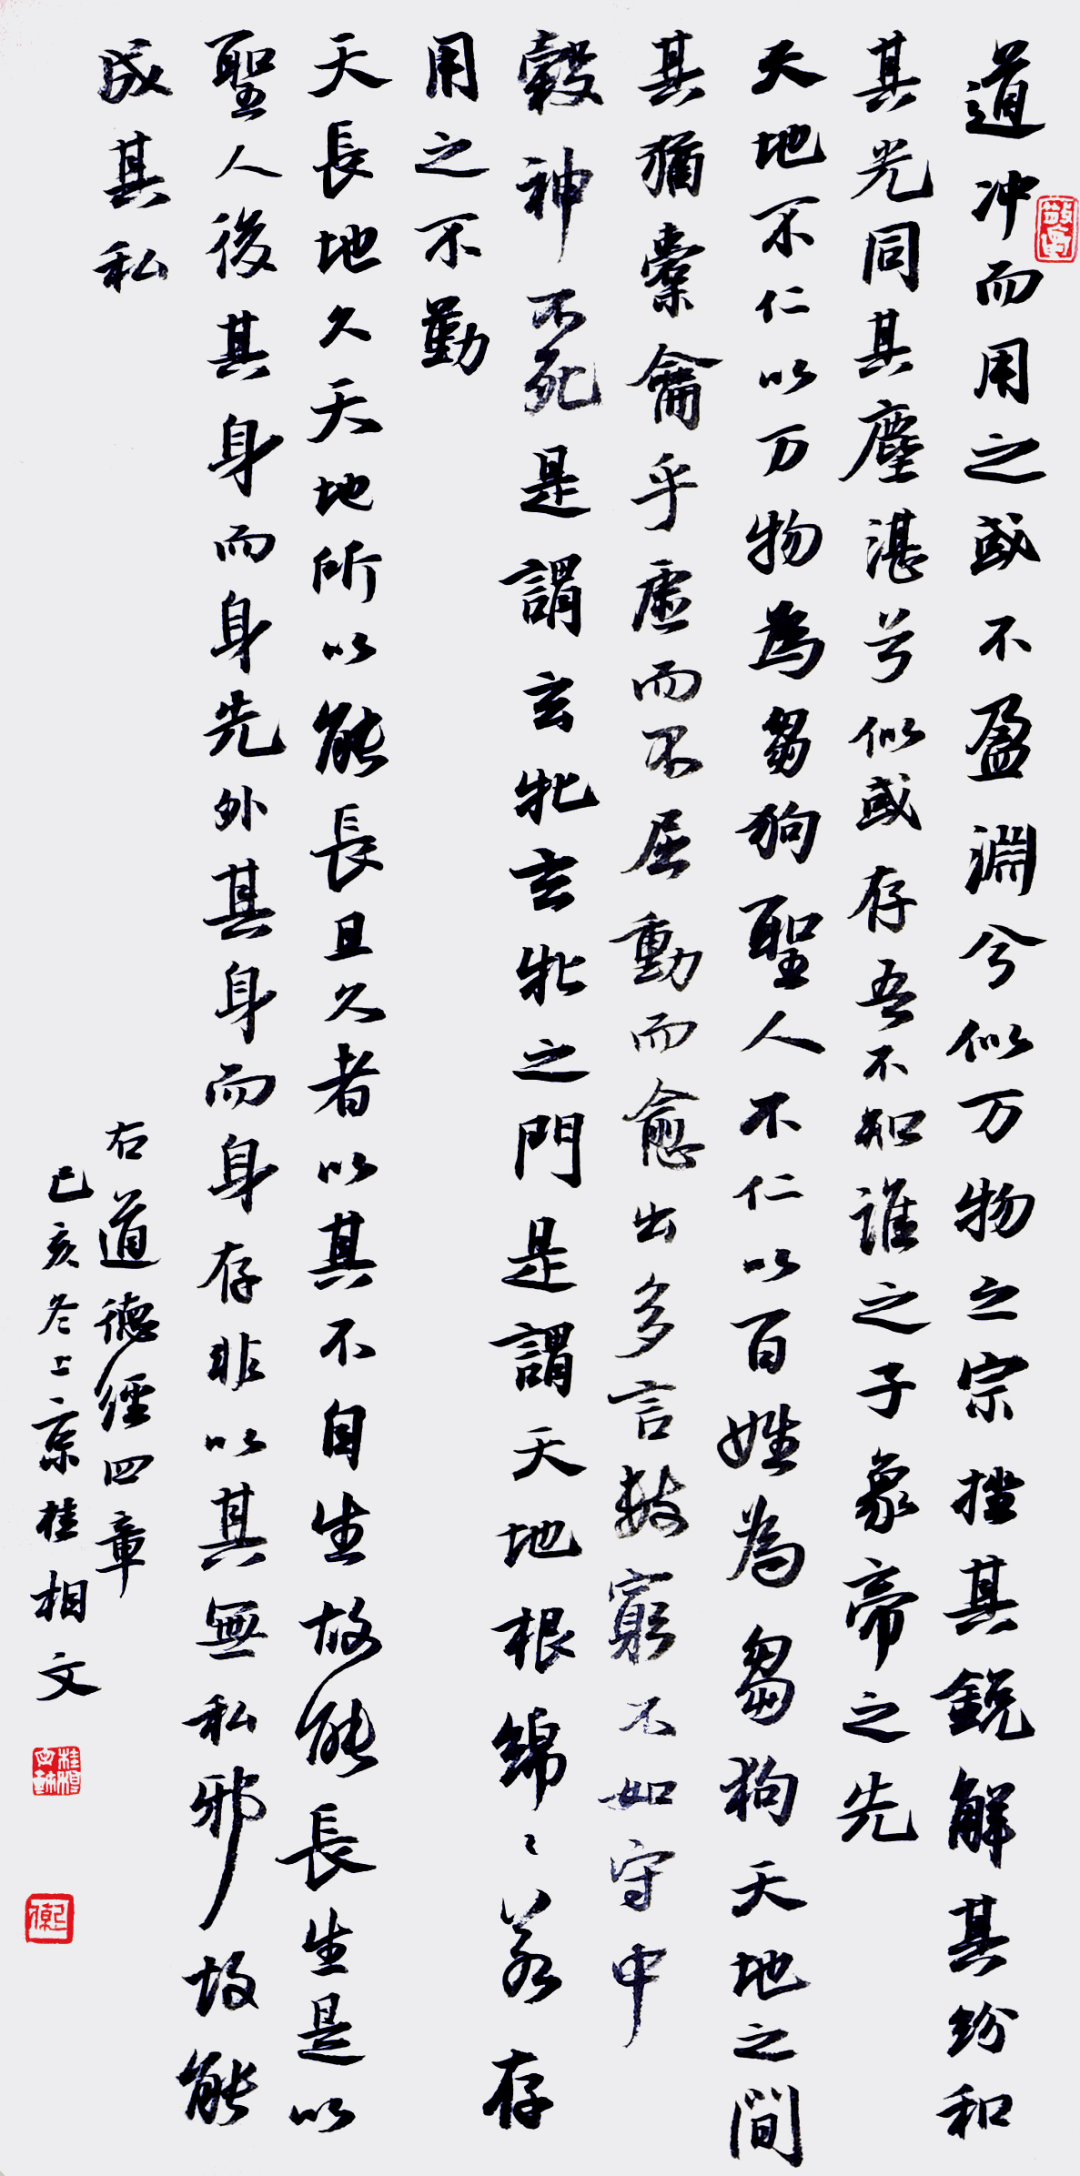 道冲而用之或不盈淵兮似万物之宗挫其銳解其纷和
其光同其塵湛兮似或存吾不知誰之子象帝之先
天地不仁以万物為芻狗聖人不仁以百姓為芻狗天地之間
其猶橐龠乎虛而不屈動而愈出多言数窮不如守中
穀神不死是謂玄牝玄牝之門是謂天地根綿〻若存
用之不勤
天長地久天地所以能長且久者以其不自生故能長生是以
聖人後其身而身先外其身而身存非以其無私邪故能
成其私
右道德經四章
己亥冬上京桂相文